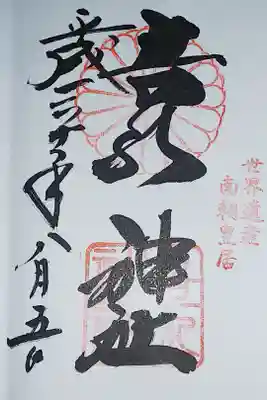 世界遺産
南朝皇居
吉水神社
平成 年八月五日